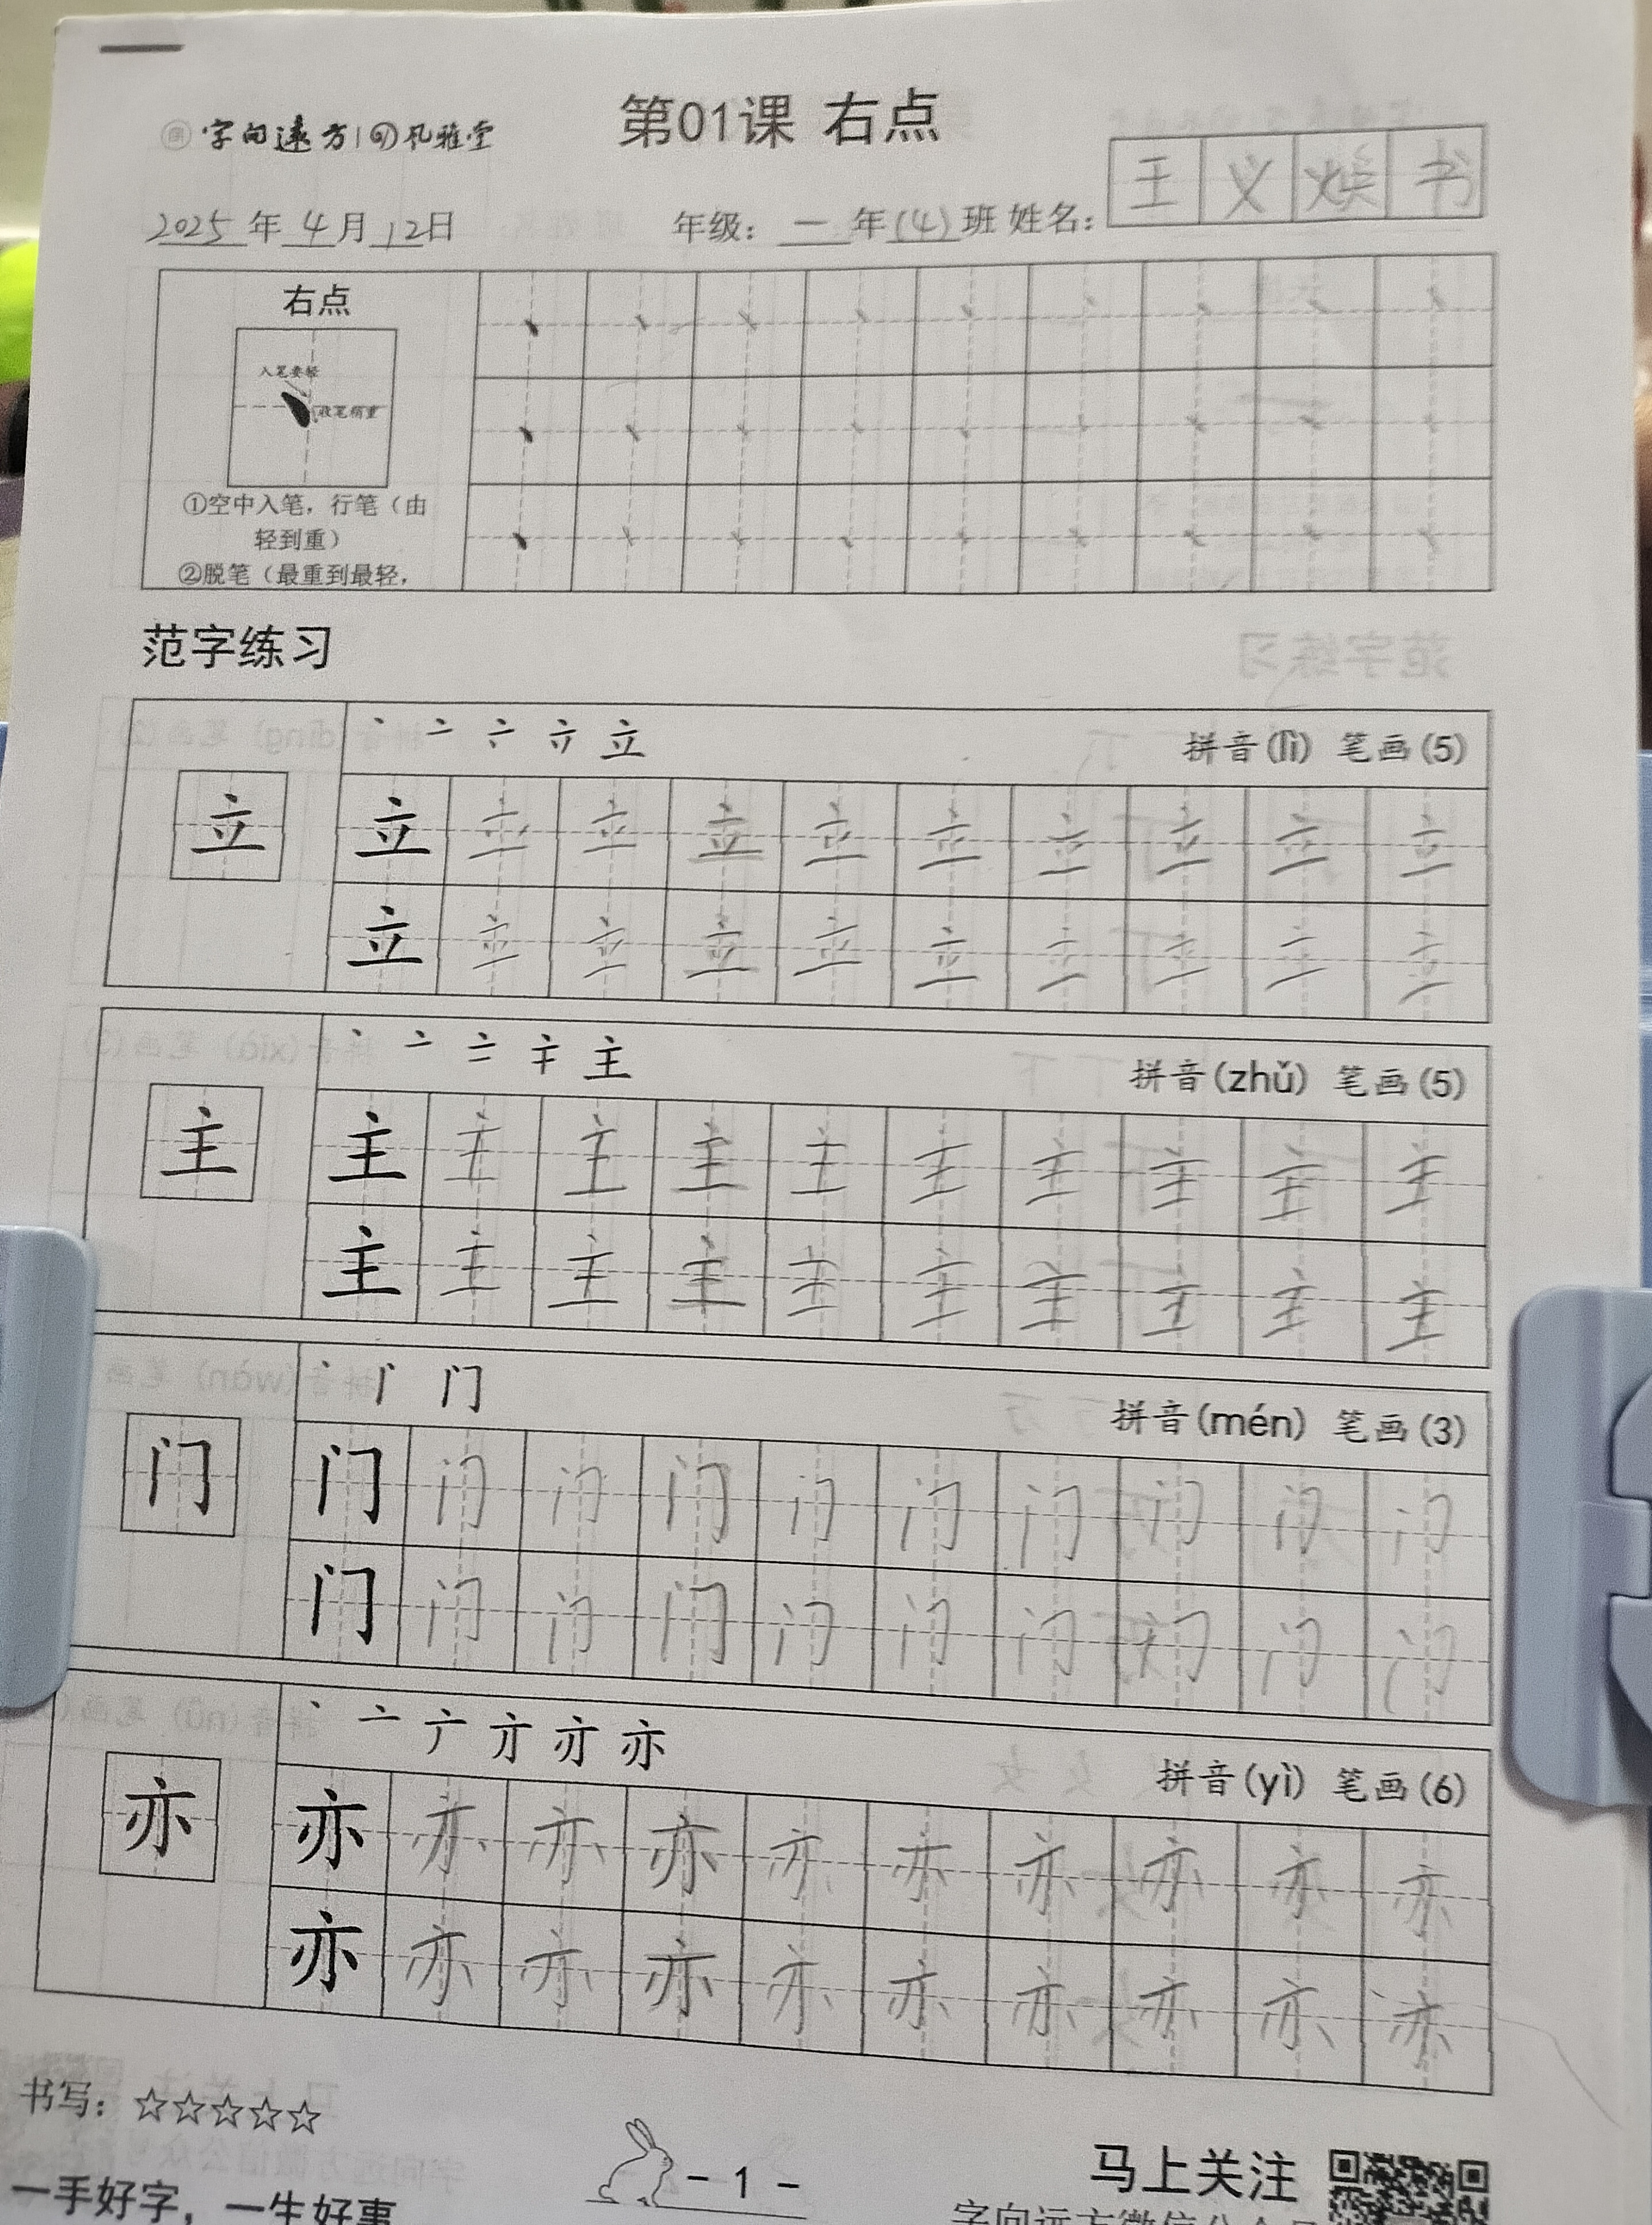 第01课 右点
字向远方 风雅堂
王义焕书
2025年4月12日 年级：一年(4)班 姓名：
右点
入笔要轻
收笔稍重
①空中入笔，行笔（由
轻到重）
②脱笔（最重到最轻，
范字练习
立 拼音(lì) 笔画(5)
立 立 立 立 立 立 立 立 立 立 立
立 立 立 立 立 立 立 立 立 立
主 拼音(zhǔ) 笔画(5)
主 主 主 主 主 主 主 主 主 主 主
主 主 主 主 主 主 主 主 主 主
门 拼音(mén) 笔画(3)
门 门 门 门 门 门 门 门 门 门 门
门 门 门 门 门 门 门 门 门 门
亦 拼音(yì) 笔画(6)
亦 亦 亦 亦 亦 亦 亦 亦 亦 亦 亦
亦 亦 亦 亦 亦 亦 亦 亦 亦 亦
书写：☆☆☆☆☆
一手好字，一生好事
- 1 -
马上关注
字向远方微信公众号